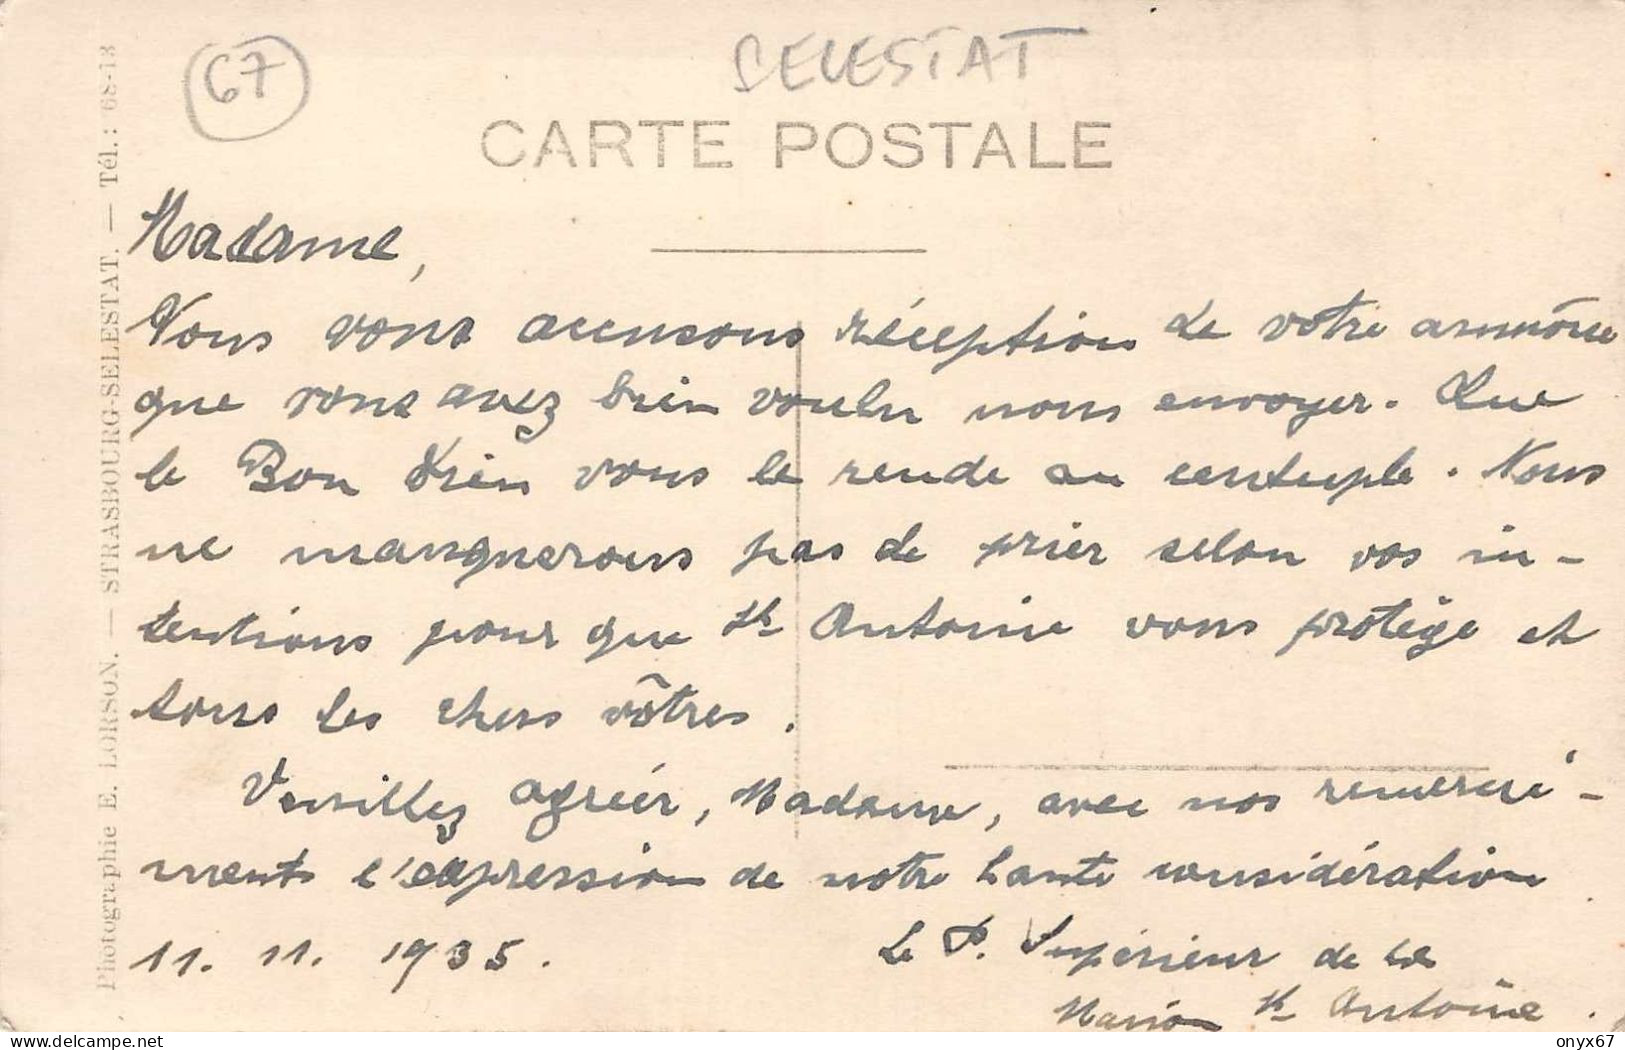 67
SELESTAT
CARTE POSTALE
Photographie E. LORSON. — STRASBOURG-SELESTAT. — Tél.: 68-13
Madame,
Nous vous accusons réception de votre aumône
que vous avez bien voulu nous envoyer. Que
le Bon Dieu vous le rende au centuple. Nous
ne manquerons pas de prier selon vos in-
tentions pour que St Antoine vous protège et
tous les chers vôtres.
Veuillez agréer, Madame, avec nos remercie-
ments l'expression de notre haute considération
11. 11. 1935.
Le P. Supérieur de la
Maison St Antoine.
Delcampe.net
onyx67